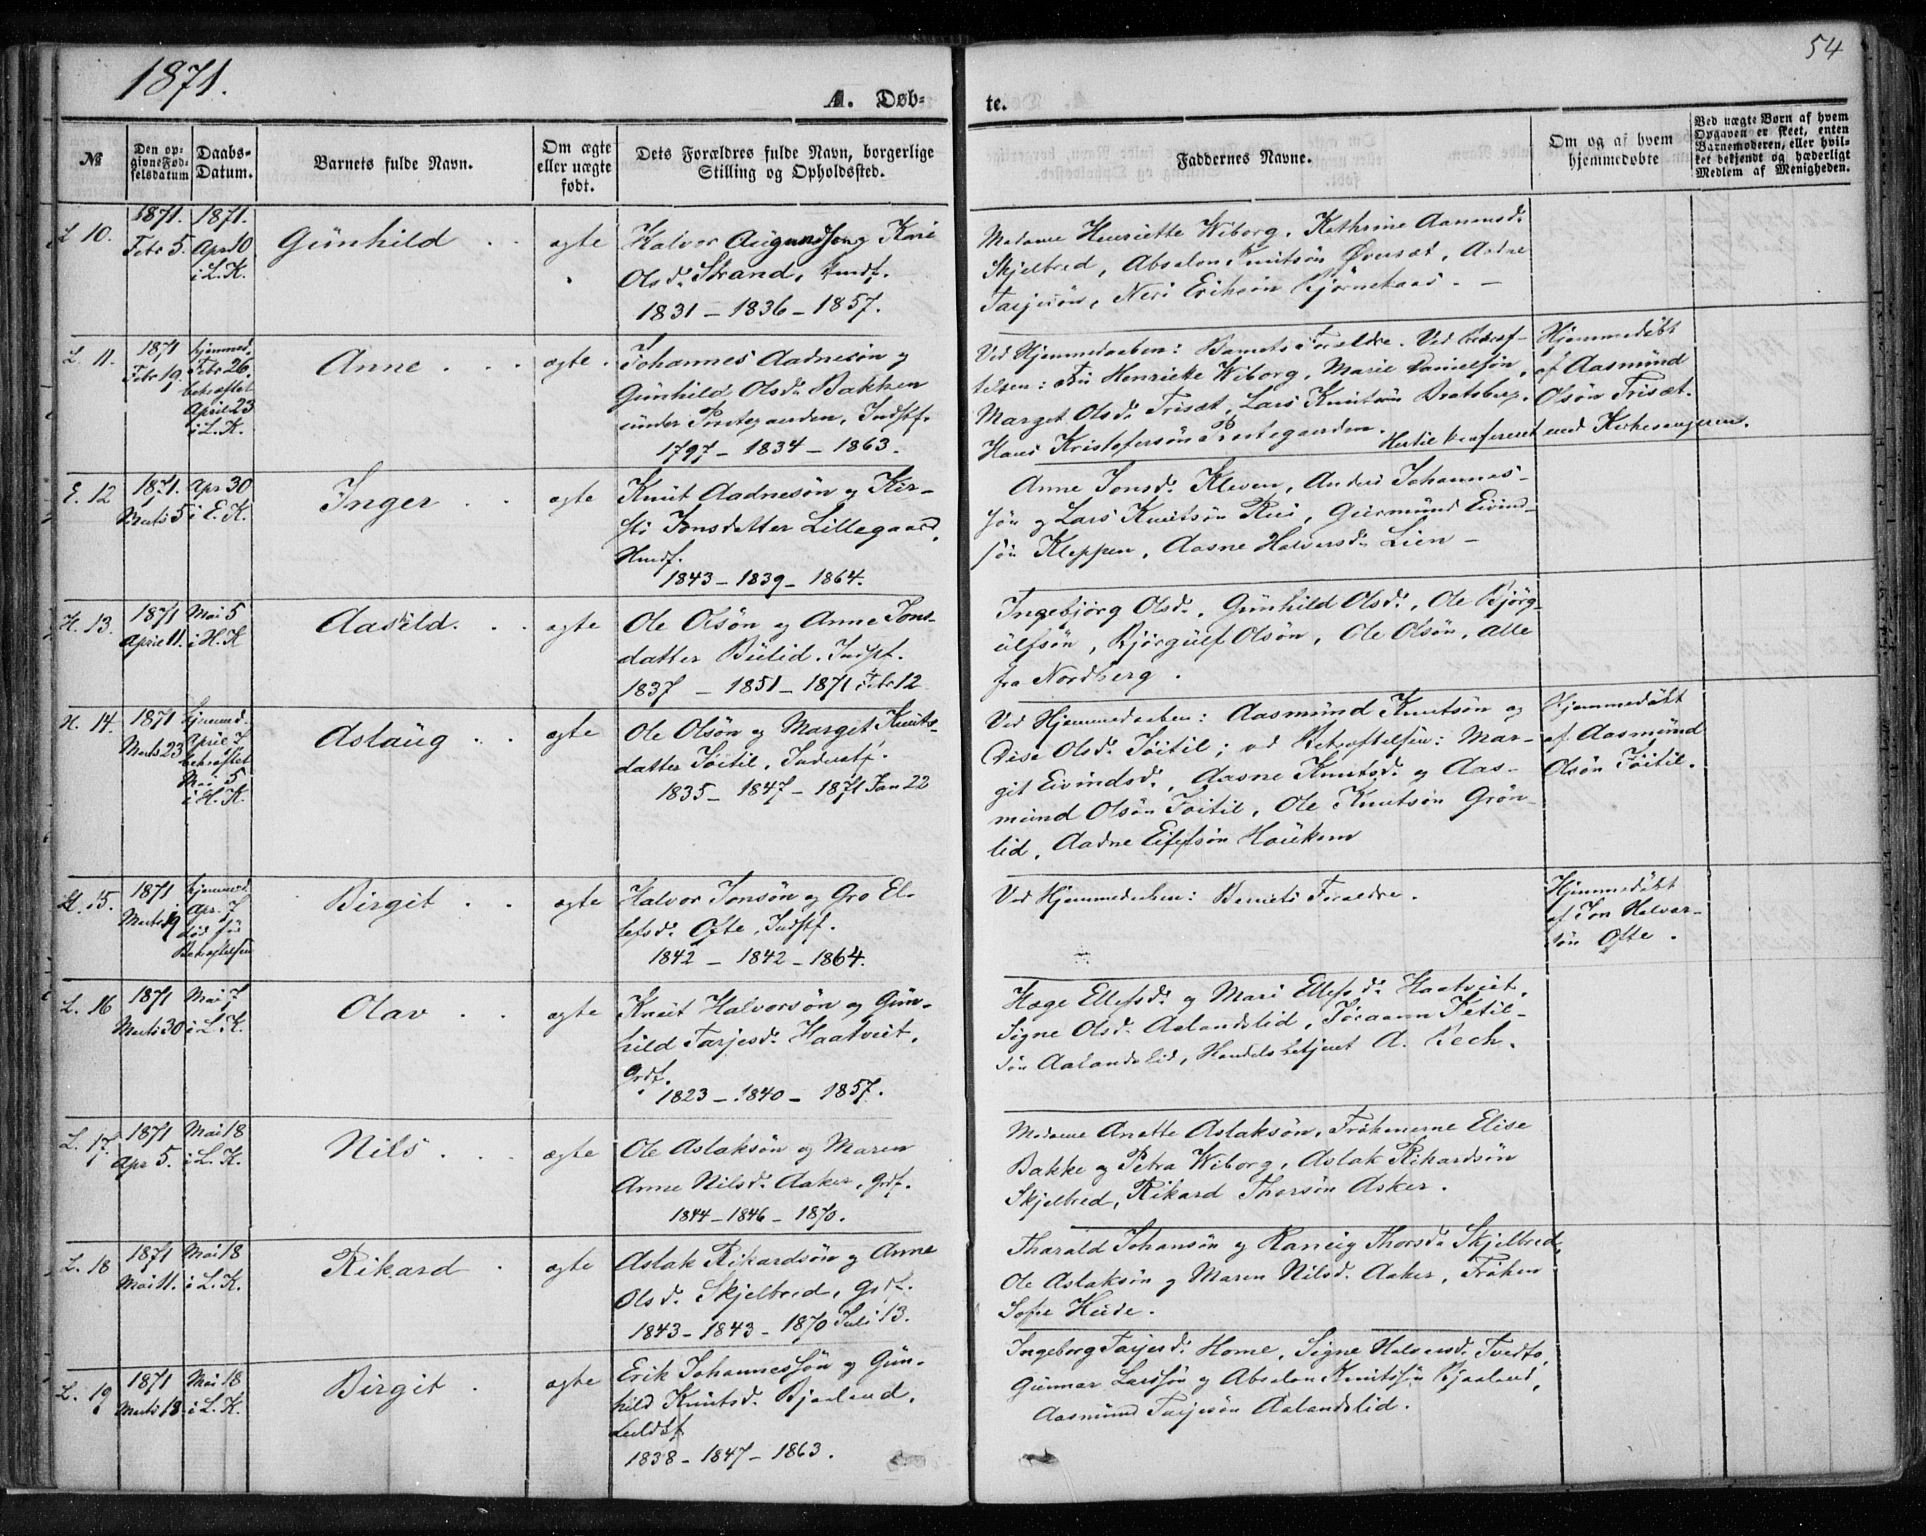 1871.
54
A. Døb-
te.
№
Den op-
givne Fød-
selsdatum
Daabs-
Datum.
Barnets fulde Navn.
Om ægte
eller uægte
født.
Dets Forældres fulde Navn, borgerlige
Stilling og Opholdssted.
Faddernes Navne.
Om og af hvem
hjemmedøbte
Ved uægte Børn af hvem
Opgaven er skeet, enten
Barnemoderen, eller hvil-
ket bekjendt og hæderligt
Medlem af Menigheden.
L. 10.
1871.
Febr 5.
1871.
Apr 10
i L. K.
Günhild
ægte
Halvor Augundsøn og Kari
Olsd. Strand, Hmdf.
1831 - 1836 - 1857.
Madame Henriette Wiborg, Kathrine Aanunsd.
Skjelbred, Absalon Knutsøn Øversæt, Aadne
Tarjesøn, Neri Eriksøn Bjørnekaas. -
L. 11.
1871
Febr 19.
hjemmed.
Febr 26.
bekræftet
April 23
i L. K.
Anne
ægte.
Johannes Aadnesøn og
Günhild Olsd. Bakken
ünder Prestegaarden, Indstf.
1797 - 1834 - 1863.
Ved Hjemmedaaben: Barnets Forældre. Ved Bekræf-
telsen: Frü Henriette Wiborg, Marie Danielsøn,
Marget Olsd. Trisæt, Lars Knütsøn Bratsberg,
Hans Kristofersøn Prestegaarden.
Hjemmedøbt
af Aasmünd
Olsøn Trisæt.
Hertil konfereret med Kirkesangeren.
E. 12
1871.
Marts 5
Apr 30
i E. K.
Inger
ægte
Knüt Aadnesøn og Kir-
sti Jonsdatter Lillegaard,
Hmdf.
1843 - 1839 - 1864.
Anne Jonsd. Kleven, Anders Johannes-
søn og Lars Knutsøn Rui, Gurmünd Eivind-
søn Kleppen, Aasne Halvorsd. Lien -
H. 13.
1871
April 11.
Mai 5
i H. K
Aasild.
ægte
Ole Olsøn og Anne Jons-
datter Bülid. Indst.
1837 - 1851 - 1871 Febr 12
Ingebjørg Olsd., Günhild Olsd., Ole Bjørg-
ülfsøn, Bjørgülf Olsøn, Ole Olsøn, alle
fra Nordberg.
H. 14.
1871
Marts 23
hjemmed.
April 7
bekræftet
Mai 5
i H. K.
Aslaüg
ægte
Ole Olsøn og Marget Knuts-
datter Töitil, Inderstf.
1835 - 1847 - 1871 Jan 22
Ved Hjemmedaaben: Aasmünd Knutsøn og
Dise Olsd. Töitil; ved Bekræftelsen: Mar-
git Eivindsd., Aasne Knutsd. og Aas-
münd Olsøn Töitil, Ole Knutsøn Grön-
lid, Aadne Eifefsøn Haükom
Hjemmedøbt
af Aasmünd
Olsön Töitil.
H. 15.
1871
Marts 19
hjemmed.
Apr. 7
död för
Bekræftelsen
Birgit
ægte
Halvor Jonsøn og Gro El-
lefsd. Ofte, Indstf.
1842 - 1842 - 1864.
Ved Hjemmedaaben: Barnets Forældre.
Hjemmedøbt
af Jon Halvor-
søn Ofte.
L. 16
1871
Marts 30
Mai 7
i L. K.
Olav
ægte
Knüt Halvorsøn og Gün-
hild Tarjesd. Haatveit,
Grdf.
1823 - 1840 - 1857.
Hæge Ellefsd. og Mari Ellefsd. Haatveit,
Signe Olsd. Aalandslid, Tøraann Ketil-
søn Aalandslid, Handelsbetjent A. Bech.
L. 17.
1871
Apr 5.
Mai 18
i L. K.
Nils
ægte
Ole Aslaksøn og Maren
Anne Nilsd. Aaker, Grdf.
1844 - 1846 - 1870.
Madame Anette Aslaksøn, Frøknerne Elise
Bakke og Petra Wiborg, Aslak Rikardsøn
Skjelbred, Rikard Thorsøn Aaker.
L. 18
1871
Mai 11.
Mai 18
i L. K.
Rikard
ægte
Aslak Rikardsøn og Anne
Olsd. Skjelbred, Grdf.
1843 - 1843 - 1870 Juli 13.
Tharald Johansøn og Raneig Thorsd. Skjelbred,
Ole Aslaksøn og Maren Nilsd. Aaker, Frøken
Sofie Heide.
L. 19
1871
Marts 18.
Mai 18
i L. K.
Birgit
ægte
Erik Johannessøn og Gün-
hild Knütsd. Bjaaland,
1838 - 1847 - 1863.
Ingeborg Tarjesd. Home, Signe Halvorsd. Tvedto,
Günnar Larssøn og Absalon Knütssøn Bjaaland,
Aasmünd Tarjesøn Aalandslid.